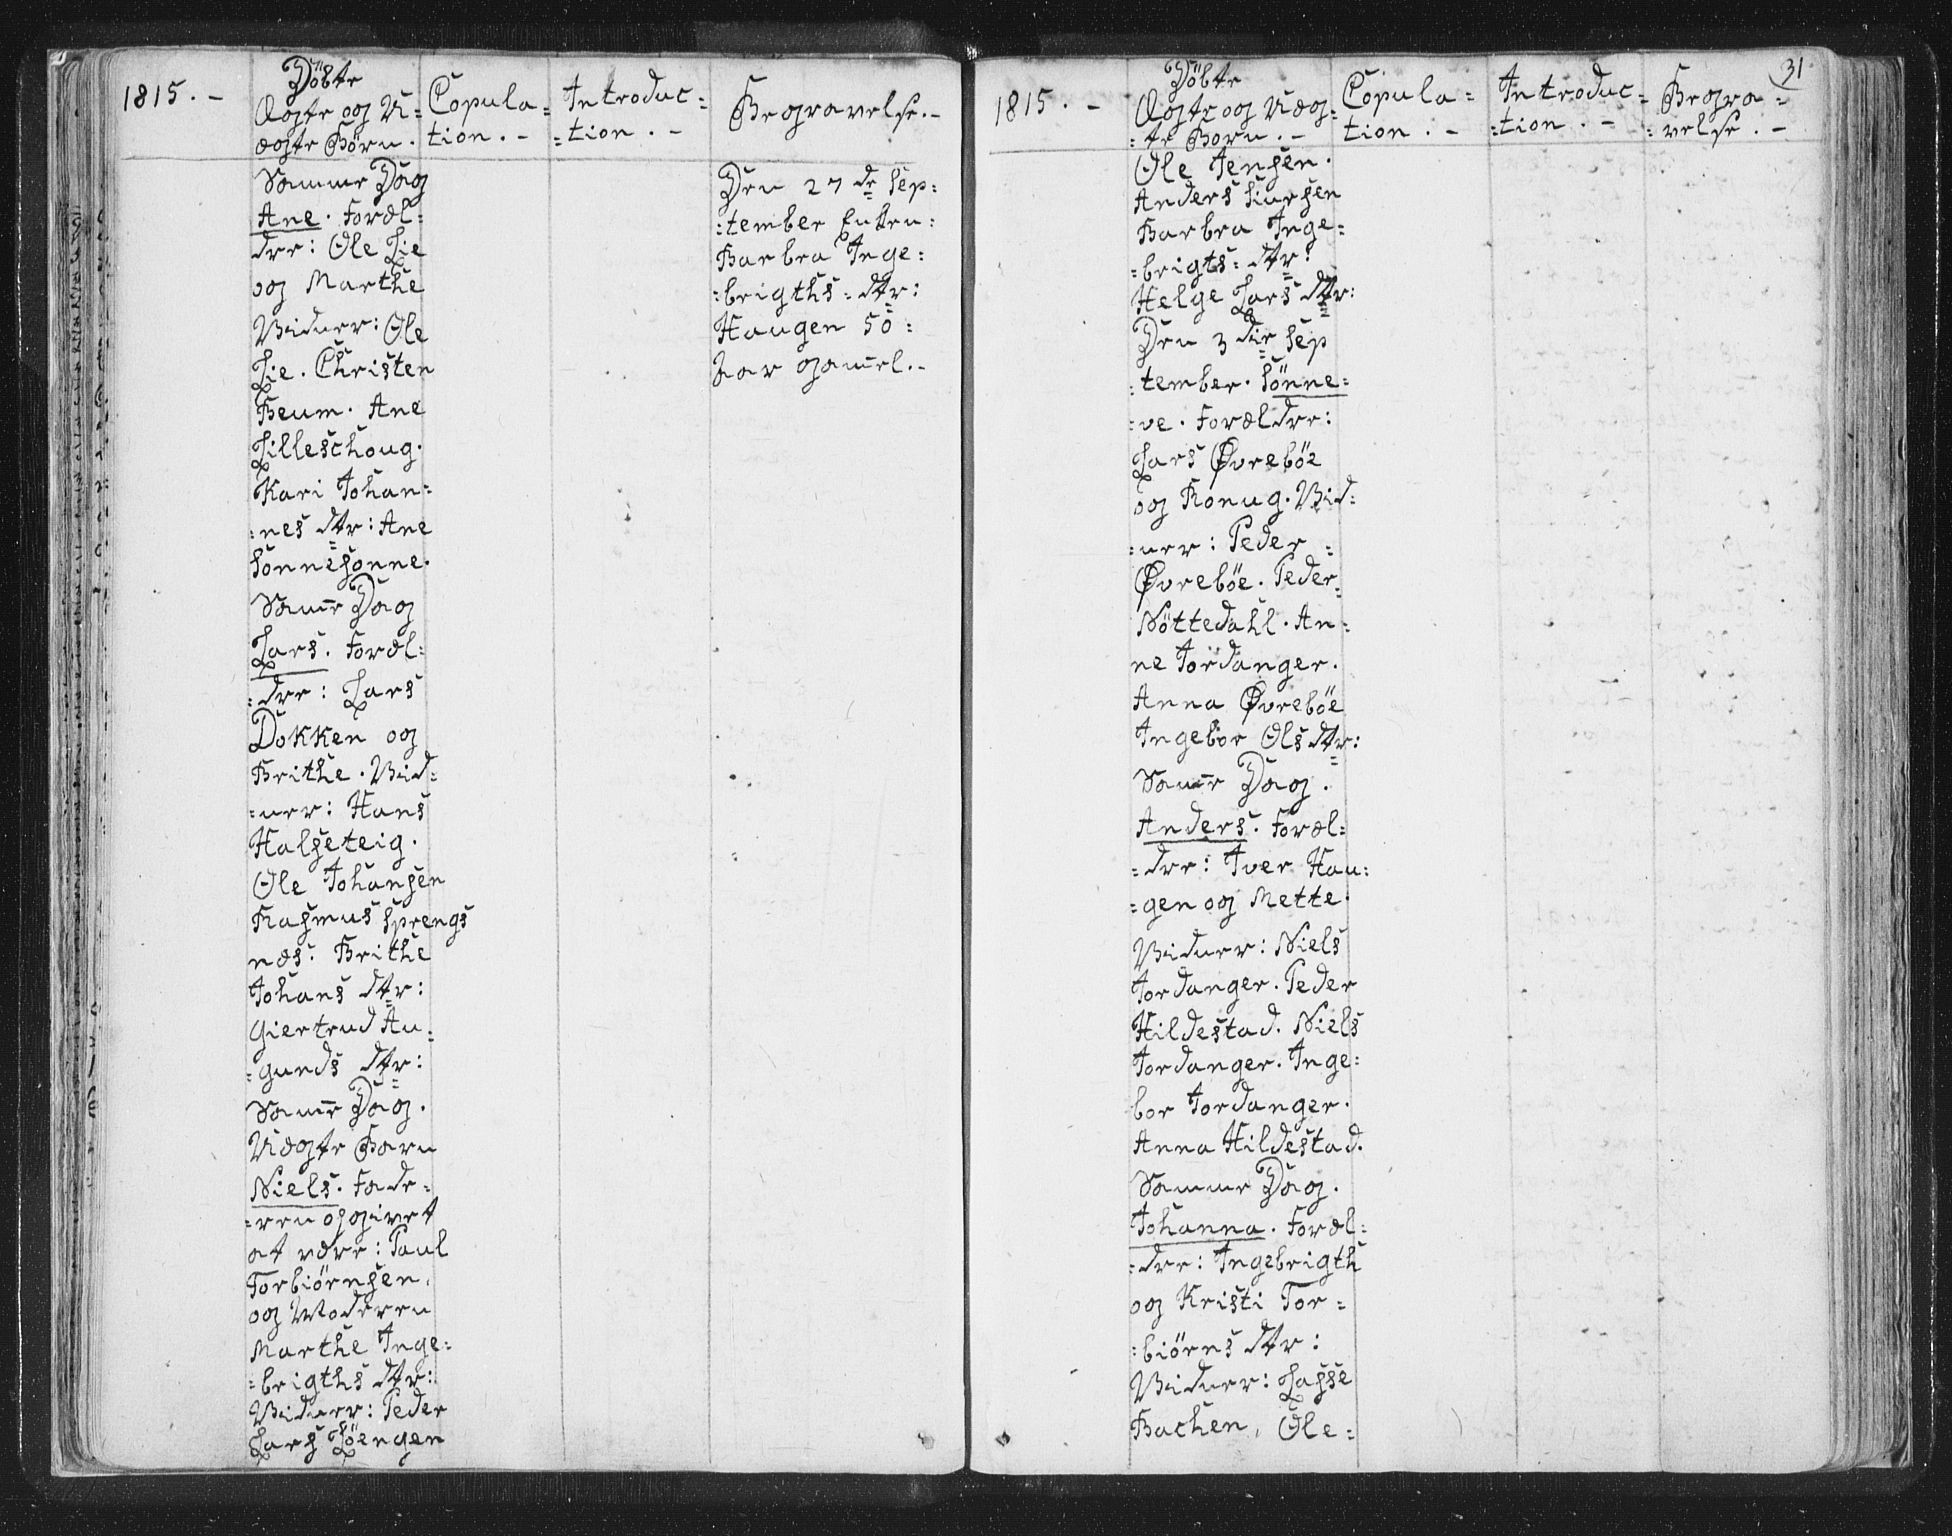 1815. -
Döbte
Ægte og U=
ægte Börn.
Copula=
tion. -
Introduc=
=tion. -
Begravelse. -
Samme Dag
Ane. Foræl=
dre: Ole Lie
og Marthe
Vidner: Ole
Lie. Christen
Beum. Ane
Lilleschoug.
Kari Johan=
=nes dtr: Ane
Sönnesönne.
Same Dag
Lars. Foræl=
=dre: Lars
Dokken og
Brithe. Vid=
=ner: Hans
Halseteig.
Ole Johansen
Rasmus Sprengs
næs. Brithe
Johans dtr:
Giertrud An=
=gunds dtr:
Same Dag.
Uægte Barn
Niels. Fade=
=ren opgivet
at være: Paul
Torbiörnsen.
og Moderen
Marthe Inge=
=brigths dtr:
Vidner: Peder
Lars Löengen
Den 27 de Sep=
=tember Enken:
Barbra Inge=
=brigths= dtr:
Haugen 50=
Aar gamel. -
1815. -
Döbte
Ægte og Uæg=
=te Börn. -
Copula=
tion. -
Introduc=
=tion. -
Begra=
=velse. -
31
Ole Jensen.
Anders Siursen
Barbra Inge=
=brigts= dtr:
Helge Lars dtr:
Den 3 die Sep
=tember. Sönne=
=ve. Forældre:
Lars Øvreböe
og Ronug. Vid=
=ner: Peder =
Øvreböe. Peder
Nöttedahl. An=
ne Jordanger.
Anna Øvreböe
Ingebor Ols dtr:
Same Dag.
Anders. Foræl=
=dre: Iver Hau=
=gen og Mette.
Vidner: Niels
Jordanger. Peder
Hildestad. Niels
Jordanger. Inge=
bor Jordanger.
Anna Hildestad.
Samme Dag.
Johanna. Foræl=
=dre: Ingebrigth
og Kristi Tor=
=biörns dtr:
Vidner: Lasse
Bachen, Ole=